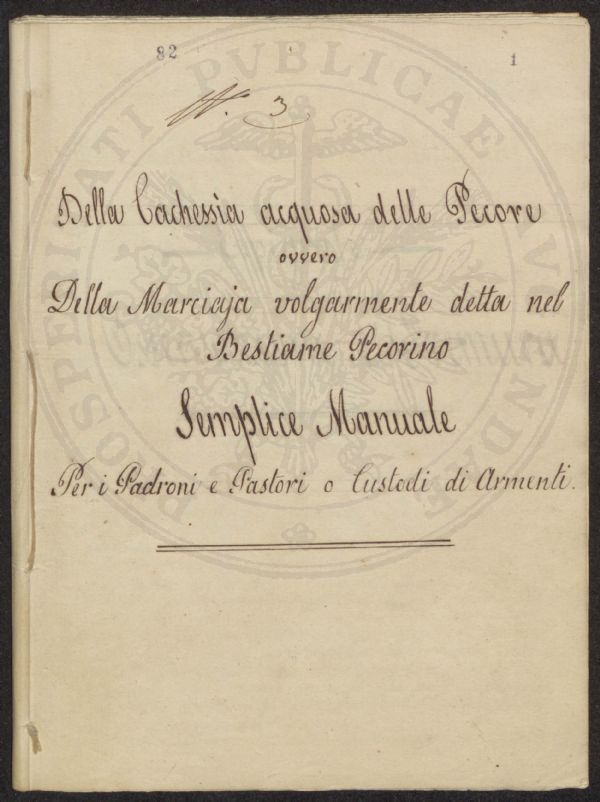 82
1
N. 3
Della Cachessia acquosa delle Pecore
ovvero
Della Marciaja volgarmente detta nel
Bestiame Pecorino
Semplice Manuale
Per i Padroni e Pastori o Custodi di Armenti.
PROSPERITATI PVBLICAE AVGENDAE